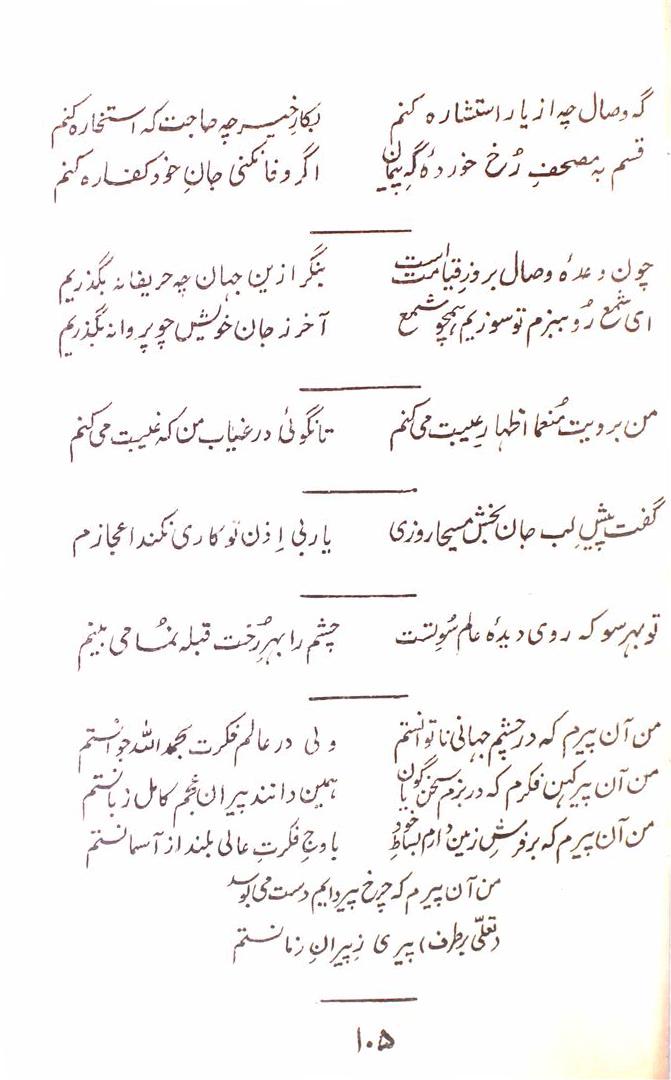 گه وصال چه از یار استشاره کنم    بکارِ خیر چه حاجت که استخاره کنم
قسم به مصحفِ رُخ خوردۂ گهِ پیمان    اگر وفا نکنی جانِ خود کفاره کنم
چون وعدۂ وصال بروزِ قیامت است    بنگر ازین جهان چه حریفانه بگذریم
ای شمع رُو ببزم تو سوزیم همچو شمع    آخر ز جان خویش چو پروانه بگذریم
من برویت مُنعما اظهارِ عیبت می کنم    تا نگوئی در غیاب من که غیبت می کنم
گفت پیشِ لبِ جان بخش مسیحا روزی    یار بی اِذن تو کاری نکند اعجازم
تو بهر سو که روی دیدۂ عالم سُویتست    چشم را بهرِ رُخت قبله نُما می بینم
من آن پیرم که در چشمِ جهانی ناتوانستم    ولی در عالم فکرت بحمد الله جوانستم
من آن پیرِ کهن فکرم که در بزم سخن گویان    همین دانند پیرانِ عجم کامل زبانستم
من آن پیرم که بر فرشِ زمین دارم بساطِ خود    باوجِ فکرتِ عالی بلند از آسمانستم
من آن پیرم که چرخِ پیر دایم دست می بوسد
(تعلّی برطرف) پیری ز پیرانِ زمانستم
۱۰۵